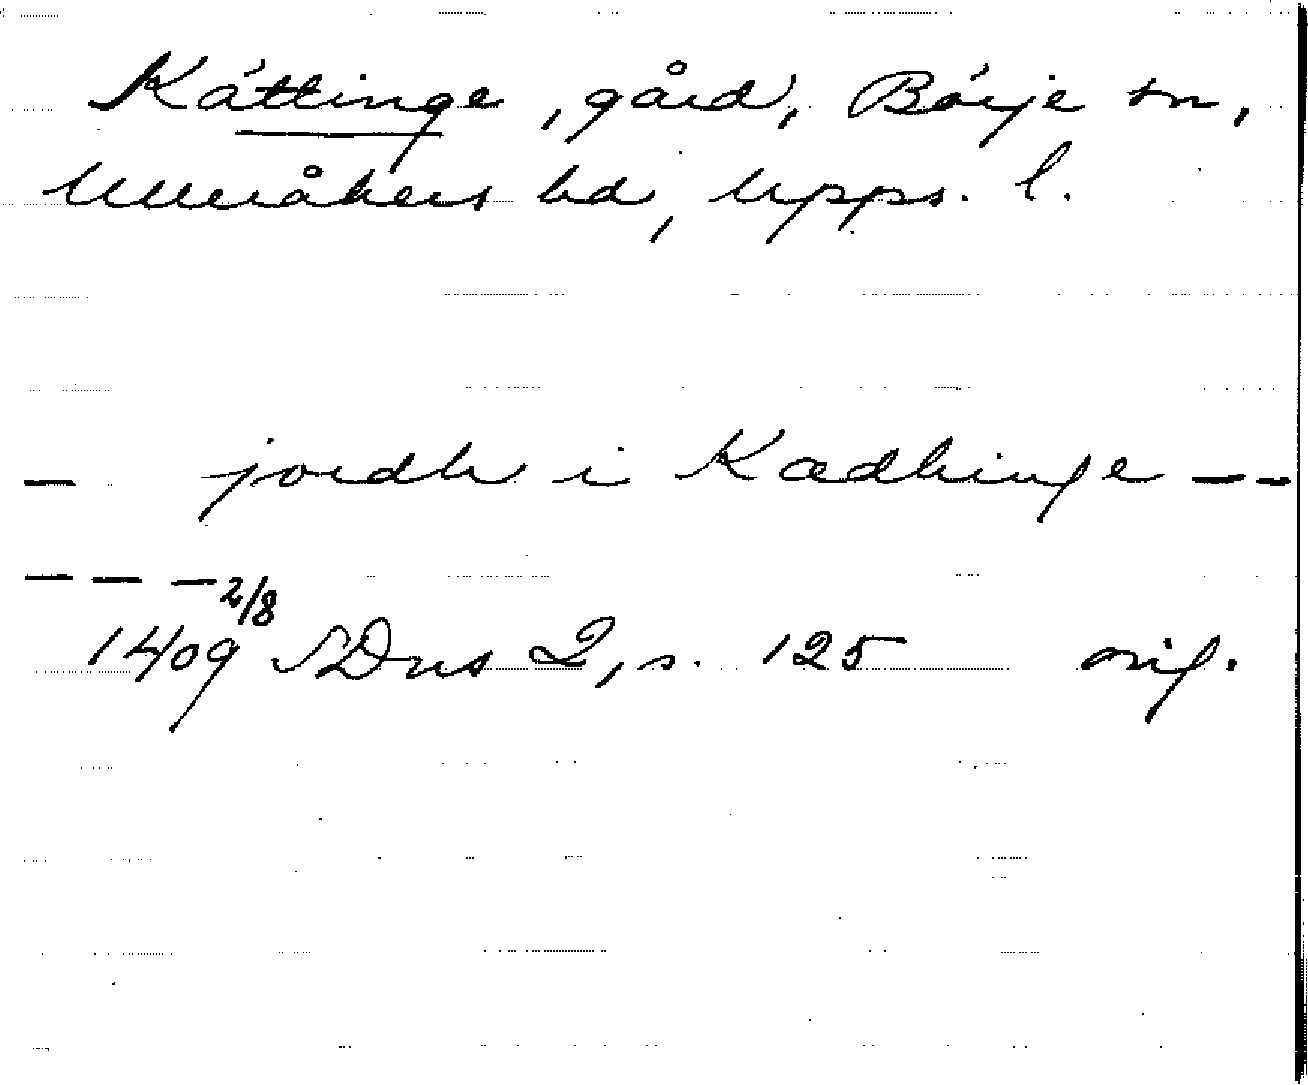 Kättinge, gård, Börje sn,
Ulleråkers hd, Upps. l.
– jordh i Kædhinge – –
– – –
1409 2/8 SDns 2, s. 125 orig.